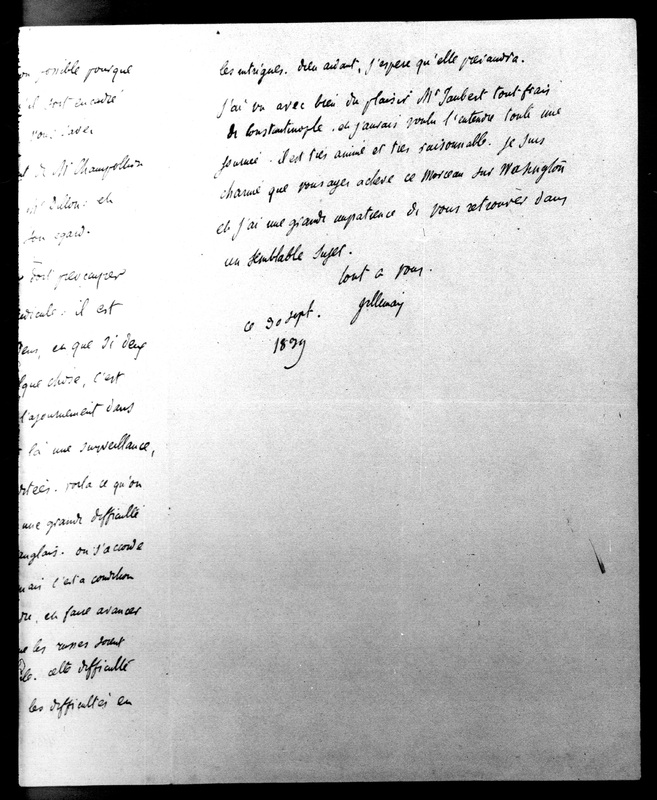 on possible pourque
il soit encadré
pour l'avoir
de Mr Champollion
Dillon. et
son égard.
doit preoccuper
ridicule. il est
Dens, et que si deux
lque chose, c'est
l'ajournement dans
là une surveillance,
ortées. voila ce qu'on
une grande difficulté
anglais. on s'accorde
mais c'est a condition
dre, et faire avancer
ue les russes soient
ple. cette difficulté
les difficultés en
les intrigues. dieu aidant, j'espere qu'elle prenandra.
J'ai vu avec bien du plaisir Mr Jaubert tout frais
de Constantinople. et j'aurais voulu l'entendre toute une
journée. il est très animé et très raisonnable. je suis
charmé que vous ayez achevé ce morceau sur Washington
et j'ai une grande impatience de vous retrouver dans
un semblable sujet.
tout a vous.
Villemain
ce 30 sept.
1839